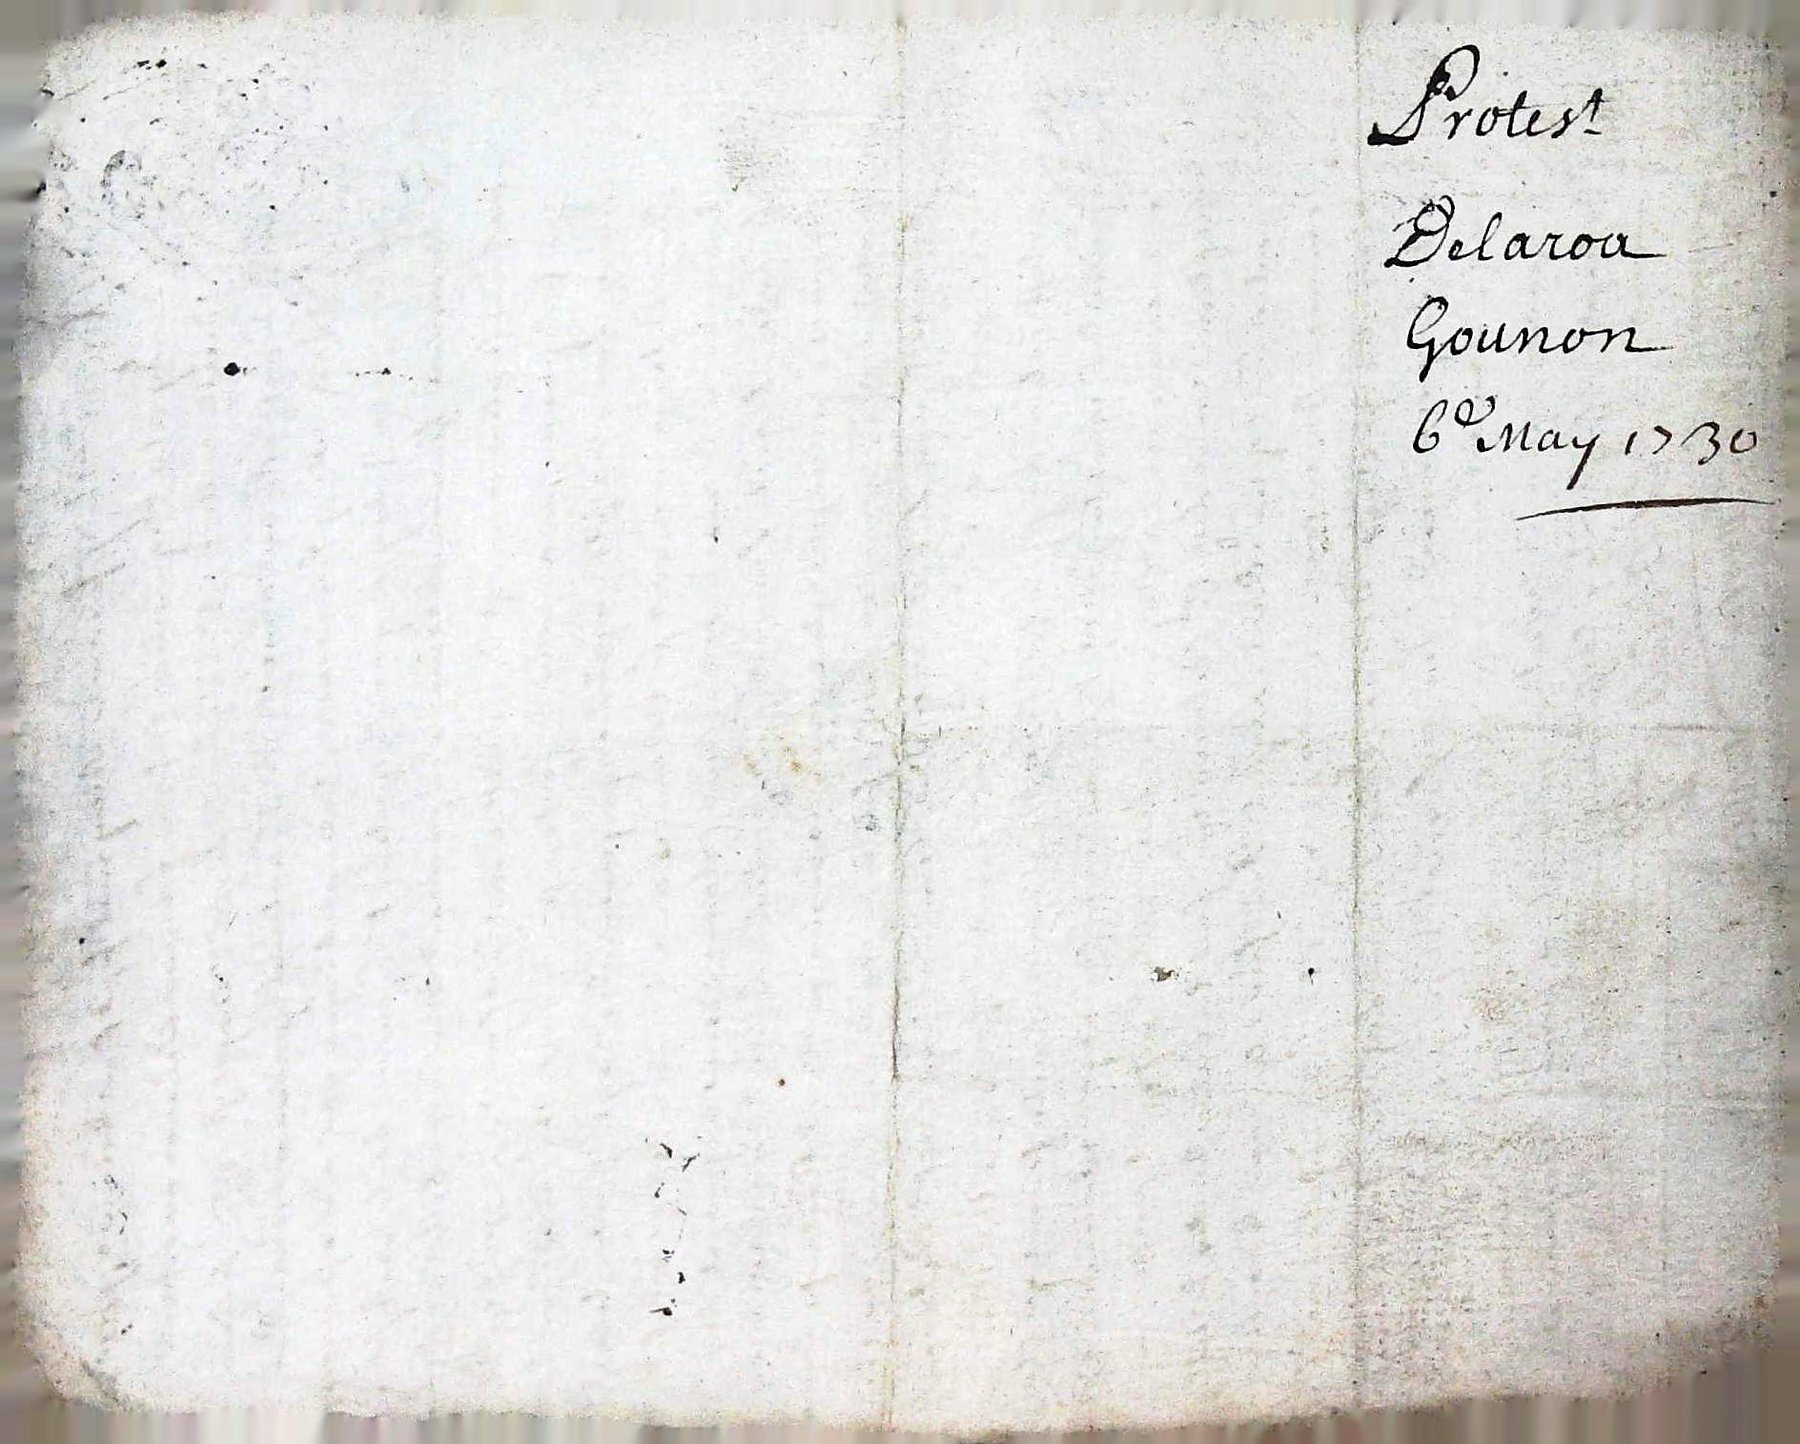 Protest
Delaroa
Gounon
6d May 1730